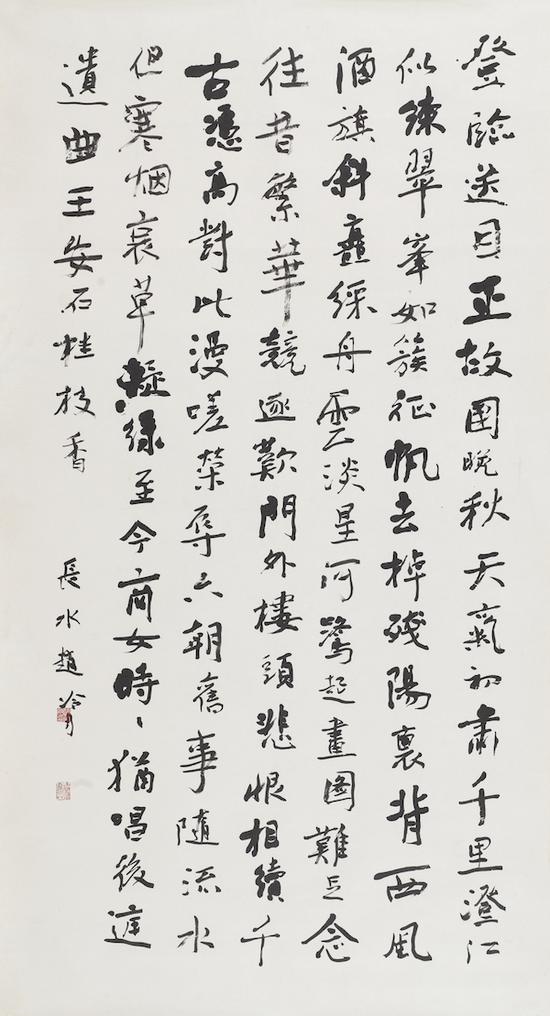 登臨送目正故國晚秋天氣初肅千里澄江
似練翠峯如簇征帆去棹殘陽裏背西風
酒旗斜矗綵舟雲淡星河鷺起畫圖難足念
往昔繁華競逐歎門外樓頭悲恨相續千
古憑高對此漫嗟榮辱六朝舊事隨流水
但寒烟衰草凝綠至今商女時〻猶唱後庭
遺曲王安石桂枝香
長水趙冷月